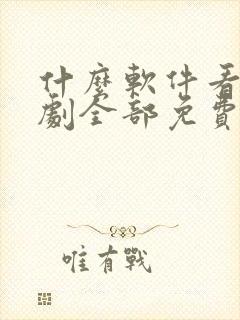 什麼軟件看
劇全部免費
唯有戰